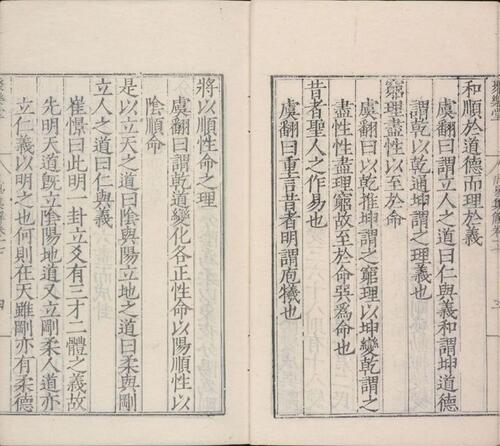 和順於道德而理於義
虞翻曰謂立人之道曰仁與義和謂坤道德
謂乾以乾通坤謂之理義也
窮理盡性以至於命
虞翻曰以乾推坤謂之窮理以坤變乾謂之
盡性性盡理窮故至於命巽爲命也
昔者聖人之作易也
虞翻曰重言昔者明謂庖犧也
將以順性命之理
虞翻曰謂乾道變化各正性命以陽順性以
陰順命
是以立天之道曰陰與陽立地之道曰柔與剛
立人之道曰仁與義
崔憬曰此明一卦立爻有三才二體之義故
先明天道旣立陰陽地道又立剛柔人道亦
立仁義以明之也何則在天雖剛亦有柔德